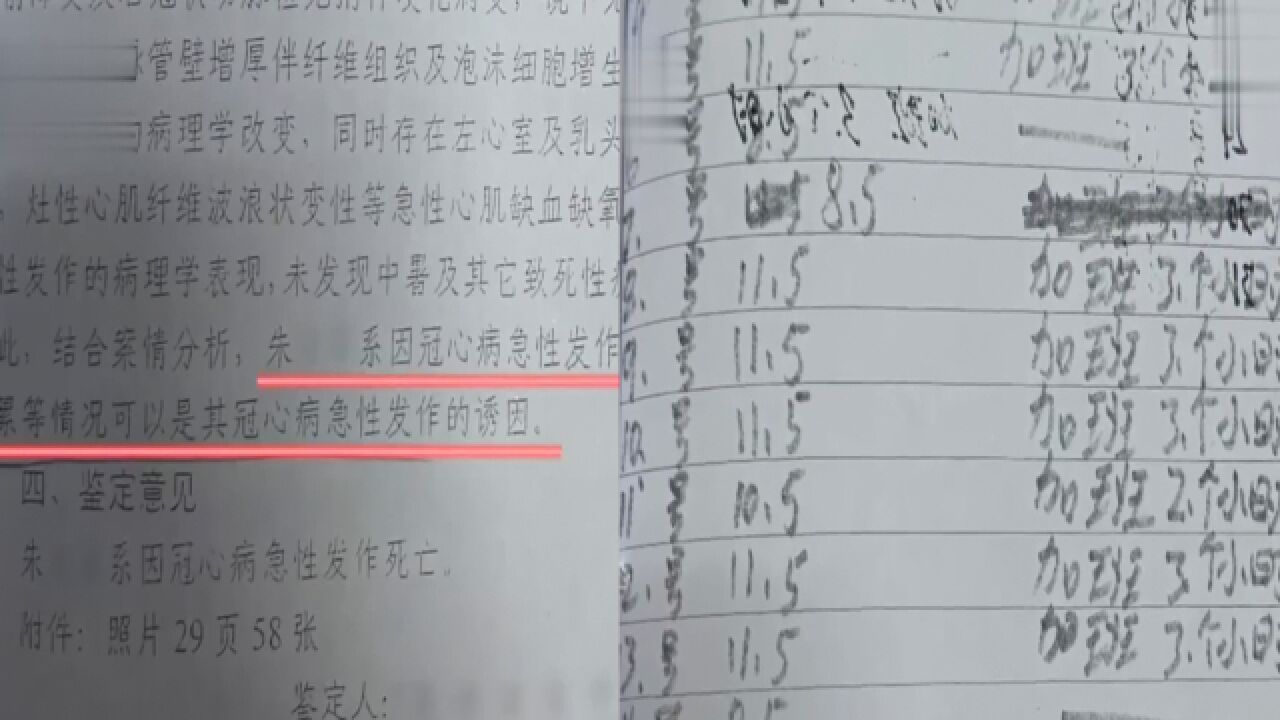 管壁增厚伴纤维组织及泡沫细胞增生
病理学改变，同时存在左心室及乳头
灶性心肌纤维波浪状变性等急性心肌缺血缺氧
性发作的病理学表现,未发现中暑及其它致死性
此，结合案情分析，朱 系因冠心病急性发作
累等情况可以是其冠心病急性发作的诱因。
四、鉴定意见
朱 系因冠心病急性发作死亡。
附件：照片 29 页 58 张
鉴定人：
11.5 加班 3.个
8.5
8. 号 11.5 加班 3.个小时
9. 号 11.5 加班 3.个小时
10. 号 11.5 加班 3.个小时
11 号 10.5 加班 2.个小时
2. 号 11.5 加班 3.个小时
3. 号 11.5 加班 3.个小时